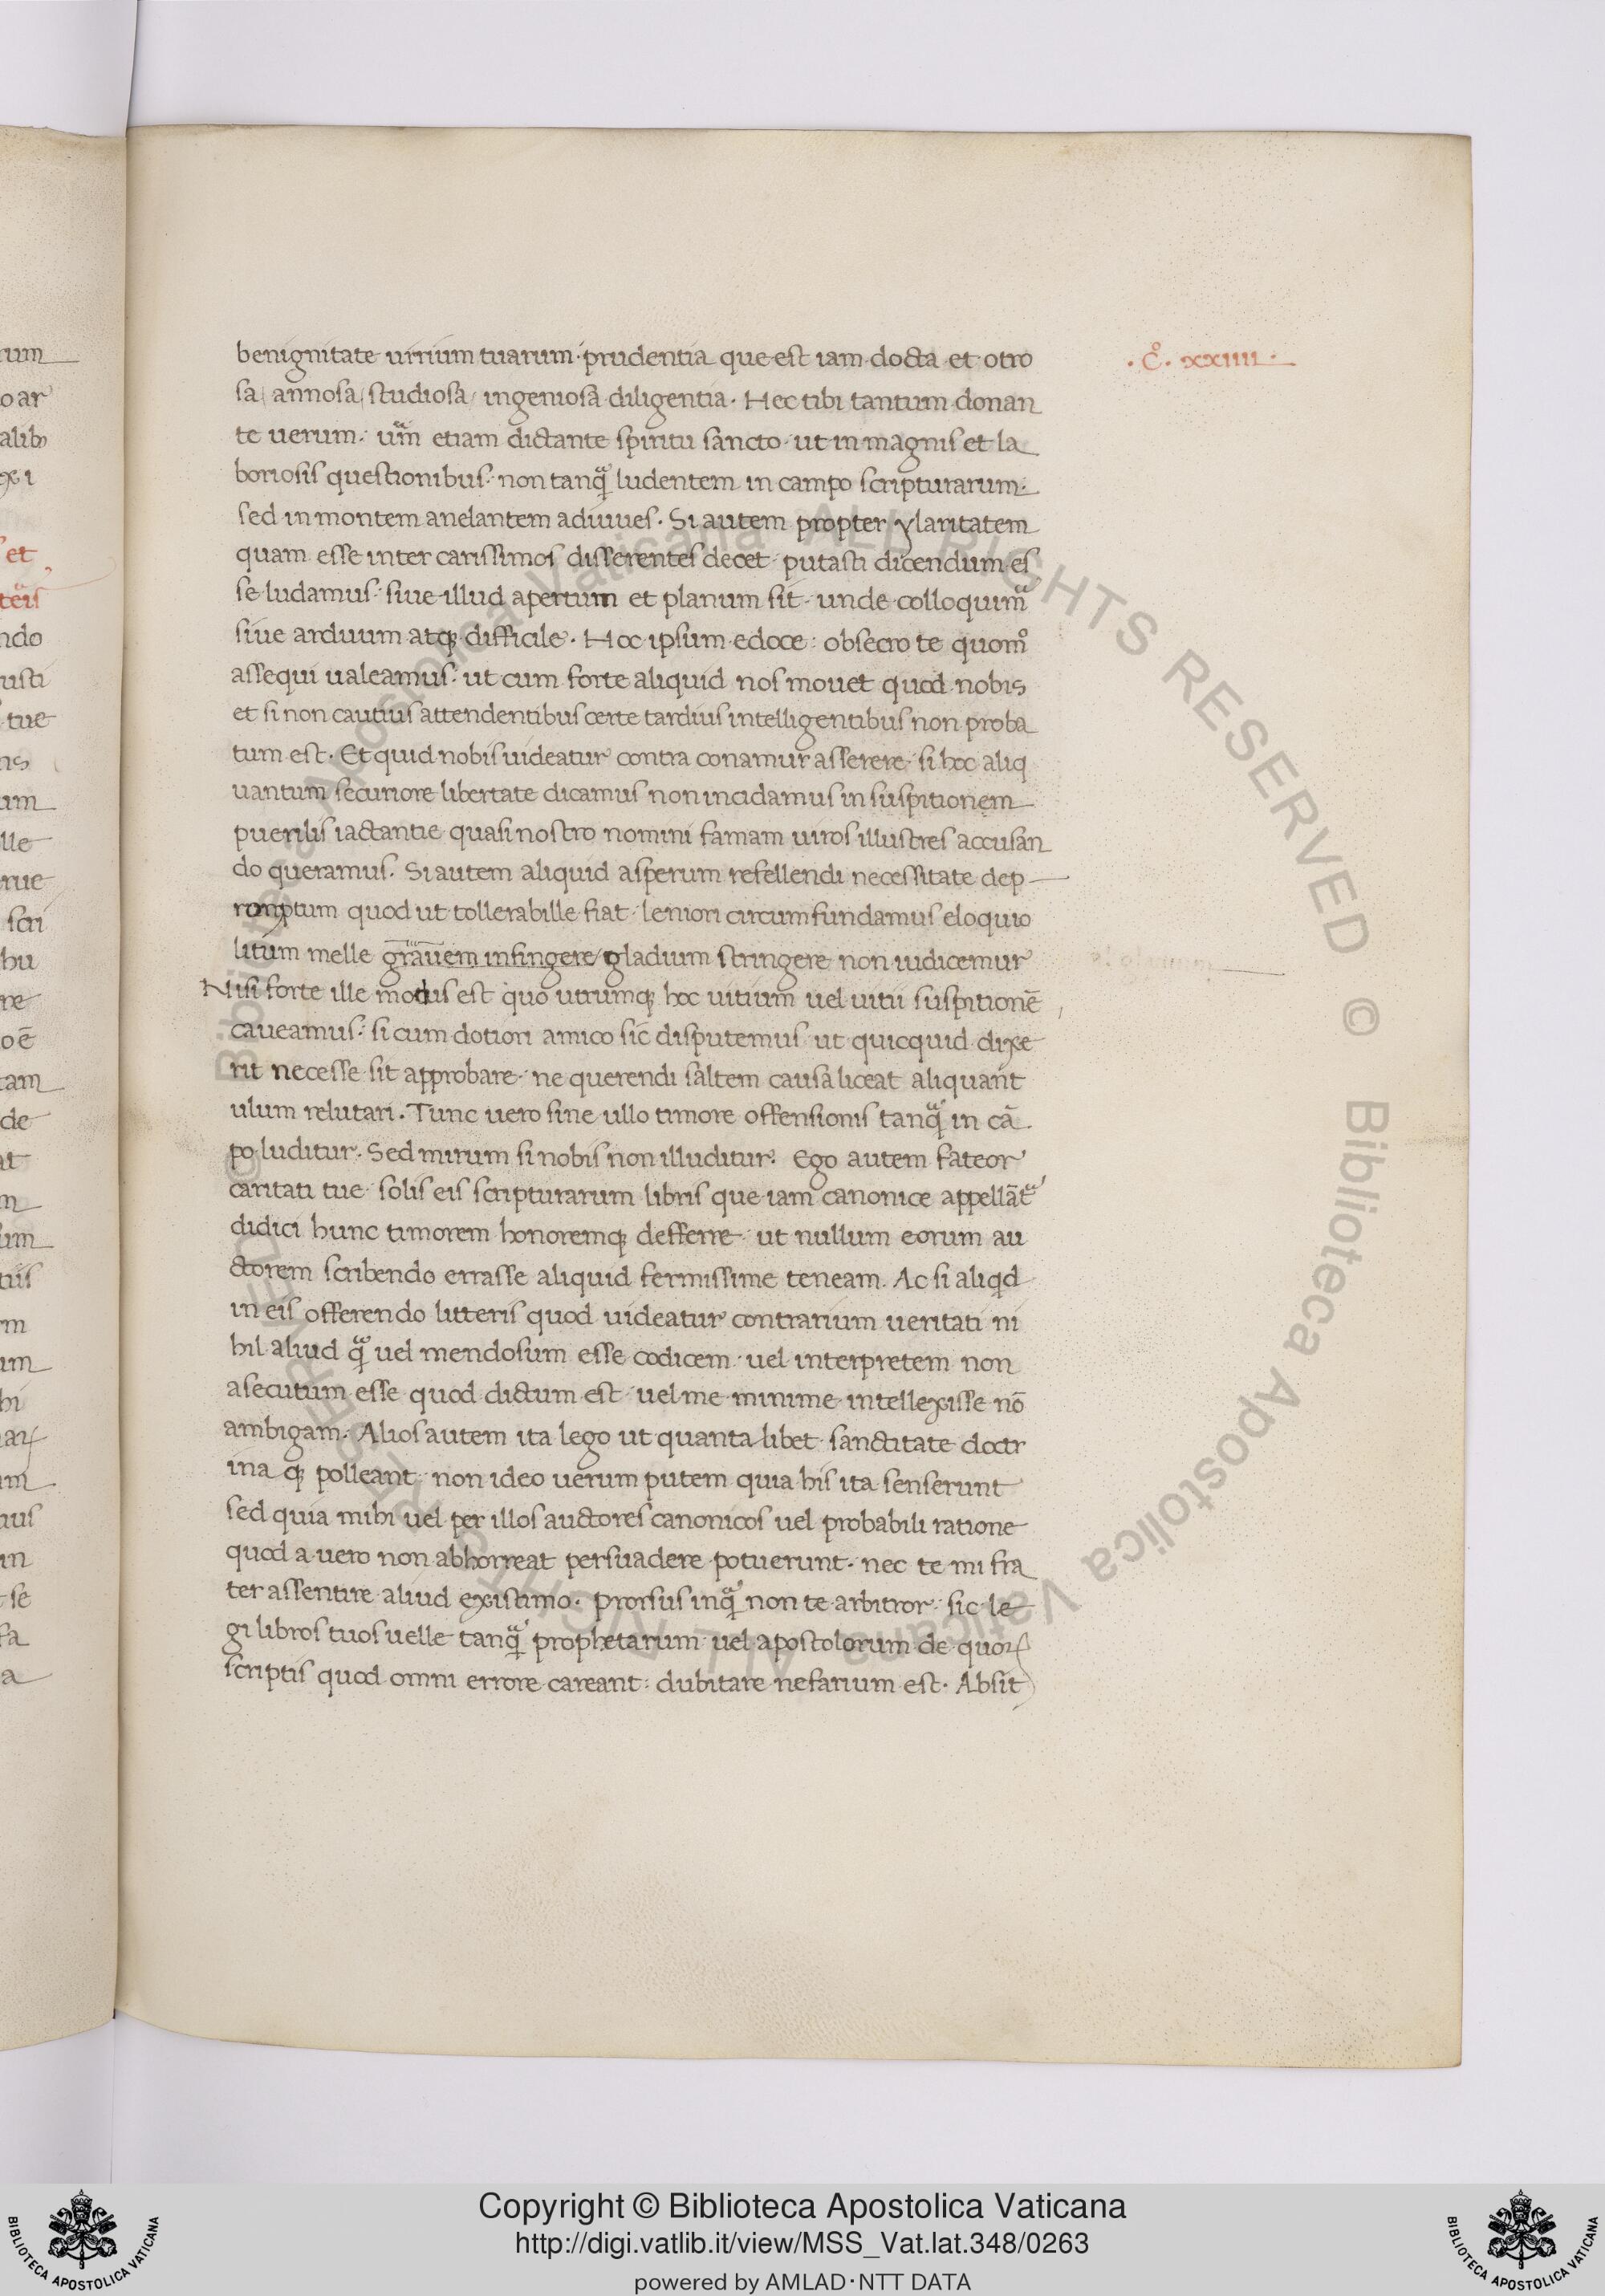 .cͦ. xxiiii.
benignitate uirium tuarum· prudentia que est iam docta et otio
sa/ annosa/ studiosa/ ingeniosa diligentia· Hec tibi tantum donan
te uerum· uͣm etiam dictante spiritu sancto· ut in magnis et la
boriosis questionibus· non tanqͣ ludentem in campo scripturarum·
sed in montem anelantem adiuues· Si autem propter ylaritatem
quam esse inter carissimos disserentes decet· putasti dicendum es
se ludamus· siue illud apertum et planum sit· unde colloquimͣ
siue arduum atqꝫ difficile· Hoc ipsum edoce: obsecro te quomͦ
assequi ualeamus· ut cum forte aliquid nos mouet quod nobis
et si non cautius attendentibus certe tardius intelligentibus non proba
tum est· Et quid nobis uideatur contra conamur asserere· si hoc aliq
uantum securiore libertate dicamus non incidamus in suspitionem
puerilis iactantie quasi nostro nomini famam uiros illustres accusan
do queramus· Si autem aliquid asperum refellendi necessitate dep
romptum quod ut tollerabille fiat· leniori circumfundamus eloquio
litum melle grauem infingere/ gladium stringere non iudicemur
Nisi forte ille modus est quo utrumqꝫ hoc uitium uel uitii suspitionē
caueamus· si cum dotiori amico sic disputemus ut quicquid dixe
rit necesse sit approbare· ne querendi saltem causa liceat aliquant
ulum relutari· Tunc uero sine ullo timore offensionis tanqͣ in cā
po luditur· Sed mirum si nobis non illuditur· Ego autem fateor
caritati tue· solis eis scripturarum libris que iam canonice appellāt̄ͣ
didici hunc timorem honoremqꝫ defferre· ut nullum eorum au
ctorem scribendo errasse aliquid fermissime teneam· Ac si aliqid
in eis offerendo litteris quod uideatur contrarium ueritati ni
hil aliud qͣ uel mendosum esse codicem· uel interpretem non
asecutum esse quod dictum est· uel me minime intellexisse nō
ambigam· Alios autem ita lego ut quanta libet· sanctitate doctr
ina qꝫ polleant· non ideo uerum putem quia his ita senserunt
sed quia mihi uel per illos auctores canonicos uel probabili ratione
quod a uero non abhorreat persuadere potuerunt· nec te mi fra
ter assentire aliud existimo· Prorsus inqͣ non te arbitror· sic le
gi libros tuos uelle tanqͣ prophetarum uel apostolorum de quoꝝ
scriptis quod omni errore careant: dubitare nefarium est· Absit
Copyright © Biblioteca Apostolica Vaticana
http://digi.vatlib.it/view/MSS_Vat.lat.348/0263
powered by AMLAD·NTT DATA